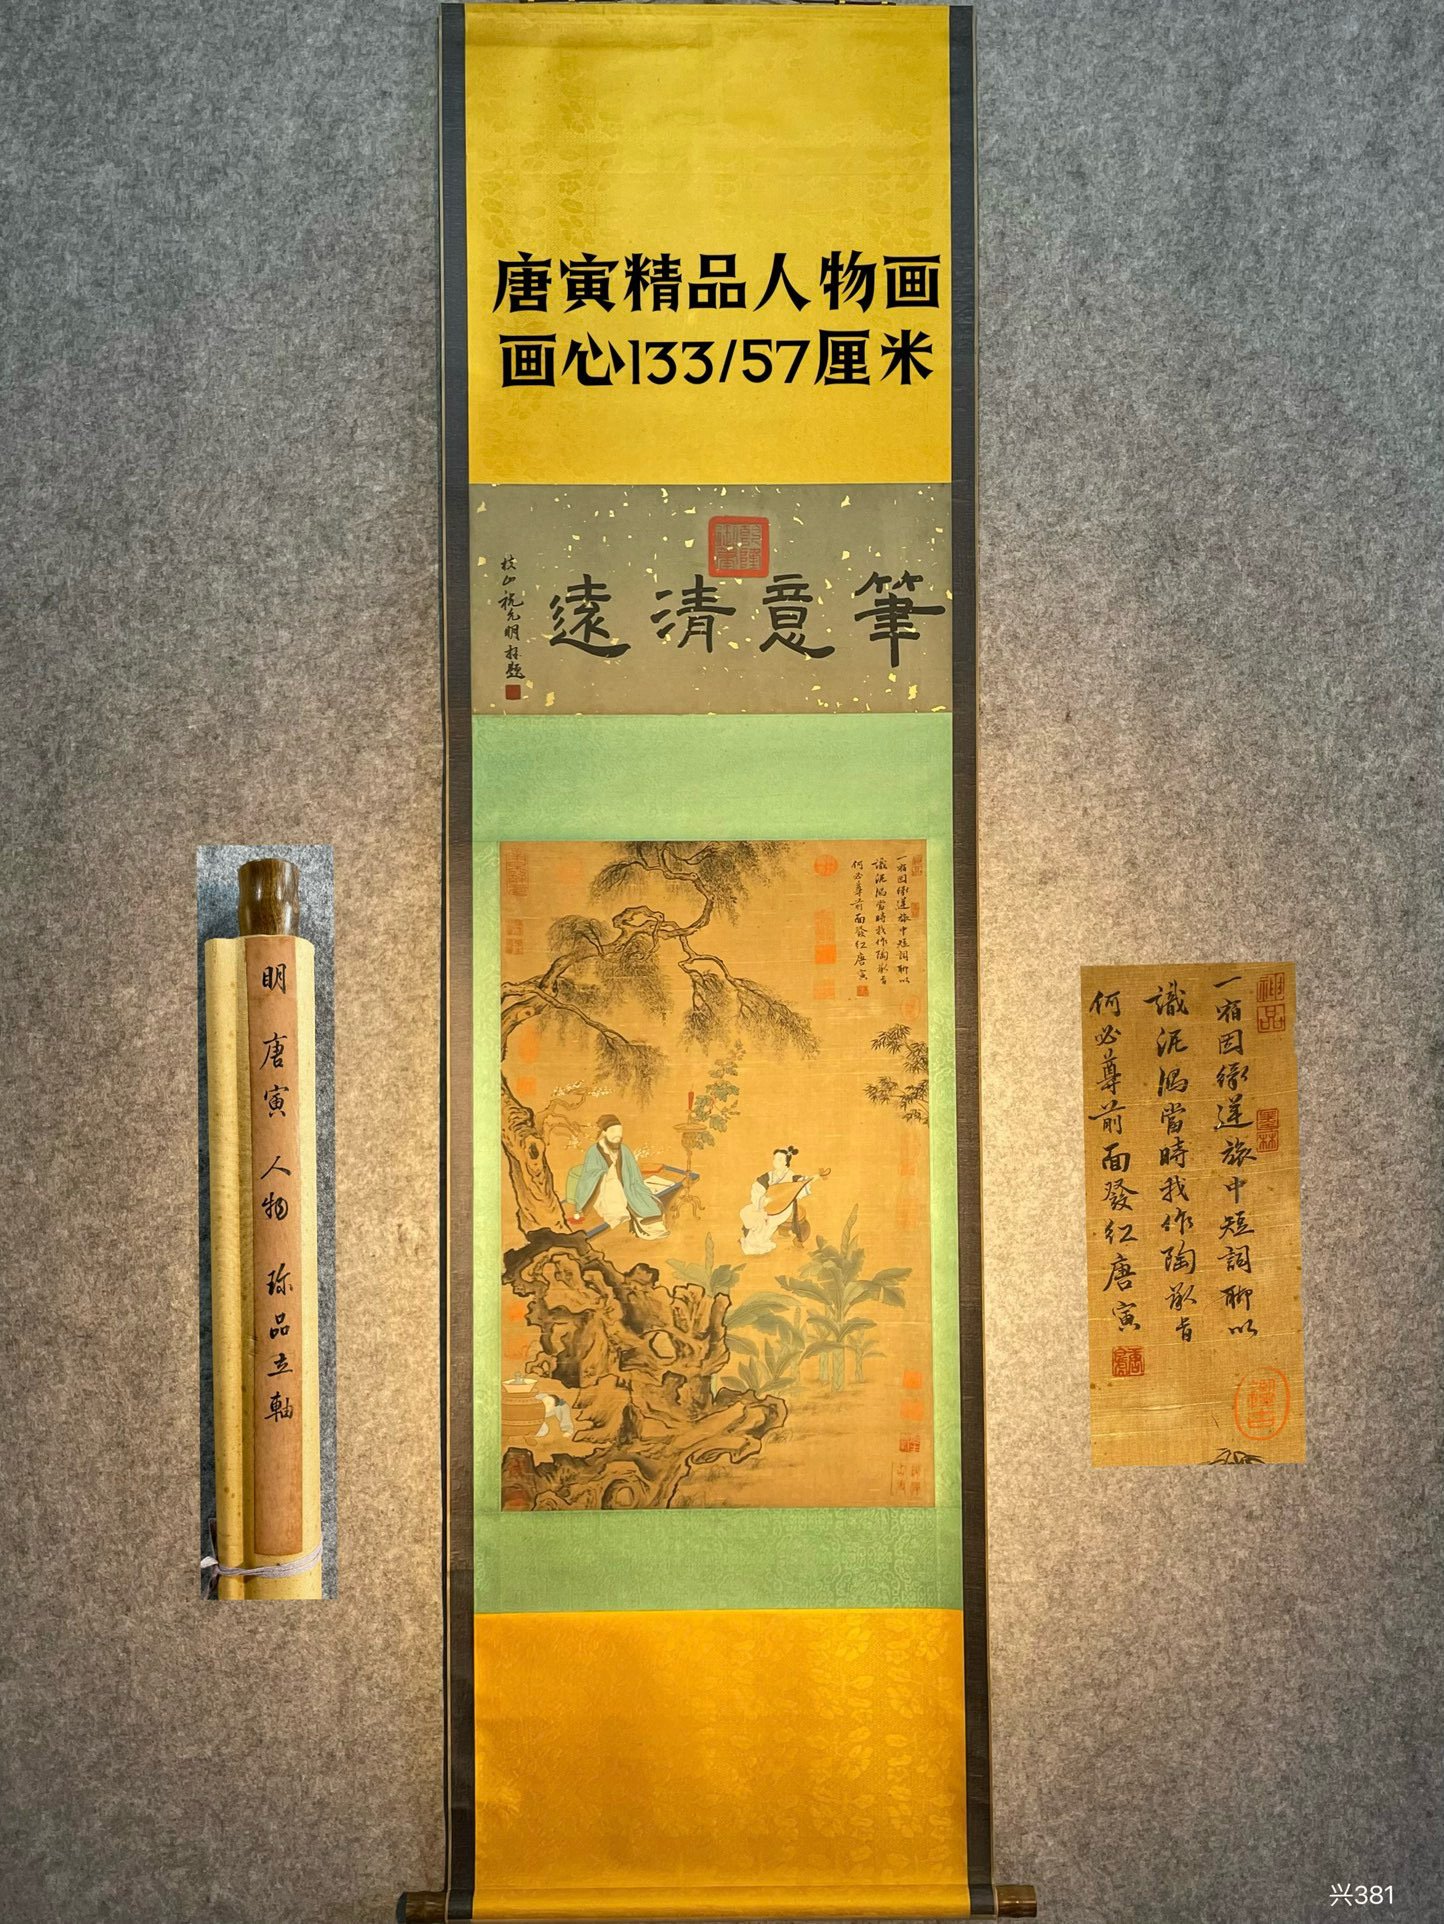 唐寅精品人物画
画心133/57厘米
筆意清遠
枝山祝允明拜題
一宿因緣逆旅中短詞聊以
識泥鴻當時我作陶承旨
何必尊前面發紅唐寅
明 唐寅 人物 珎品立軸
神品
一宿因緣逆旅中短詞聊以
識泥鴻當時我作陶承旨
何必尊前面發紅唐寅
兴381